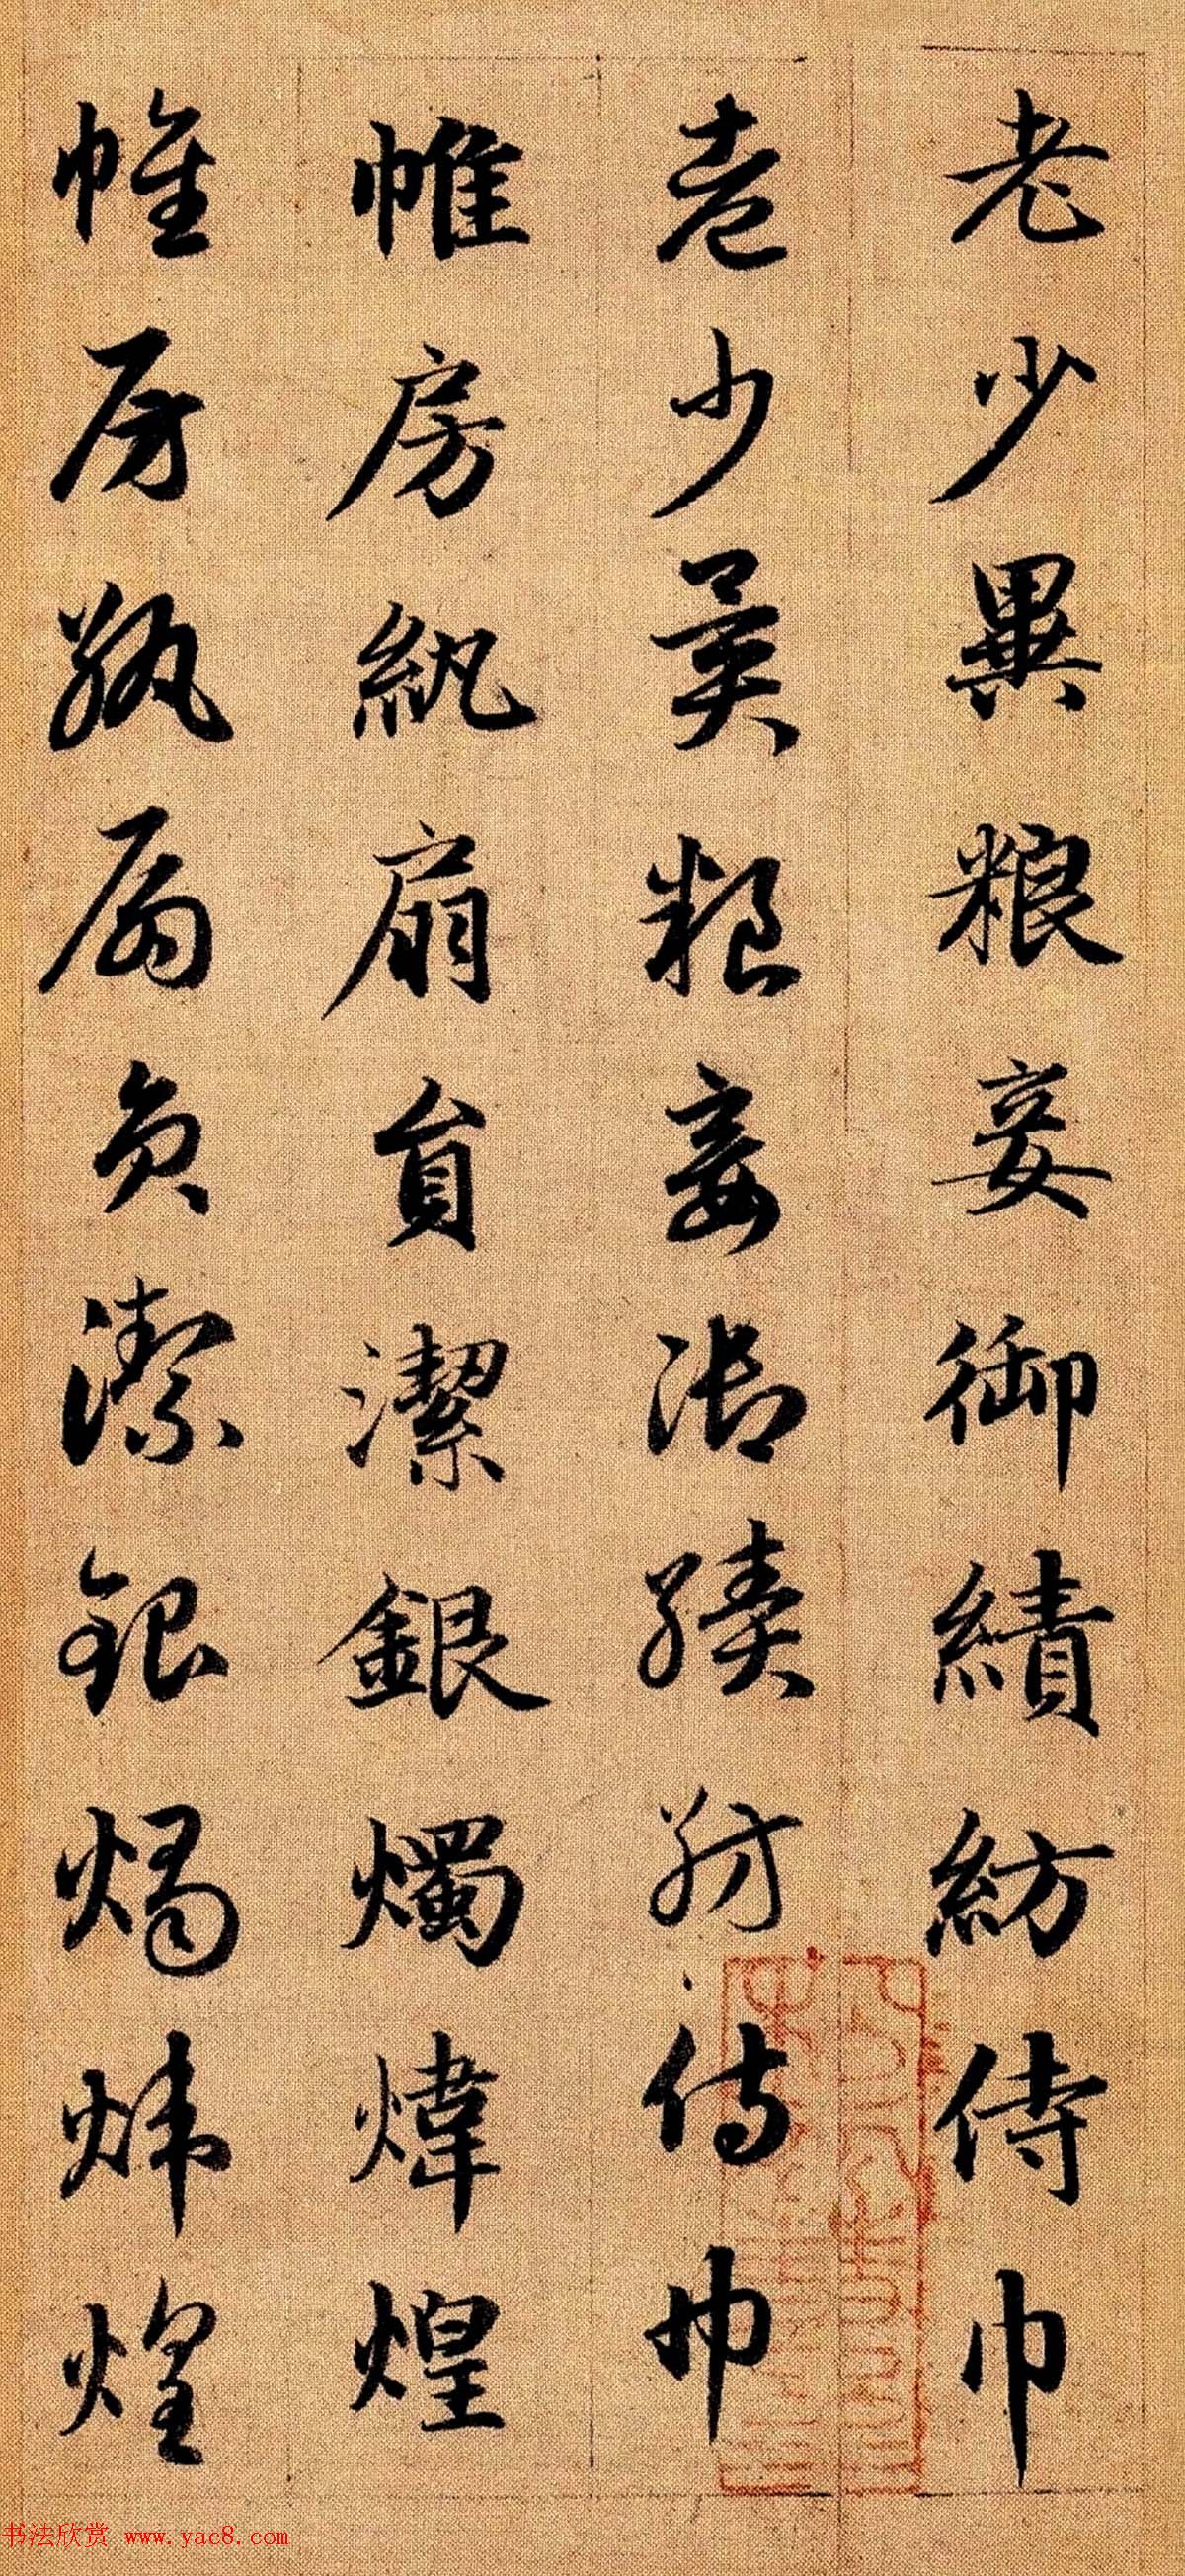 老少異粮妾御績紡侍巾
老少異粮妾御績紡侍巾
帷房紈扇員潔銀燭煒煌
帷房紈扇員潔銀燭煒煌
书法欣赏 www.yac8.com